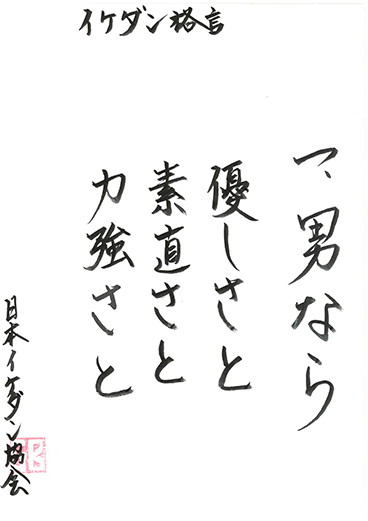 イケダン格言
一、男なら
優しさと
素直さと
力強さと
日本イケダン協会